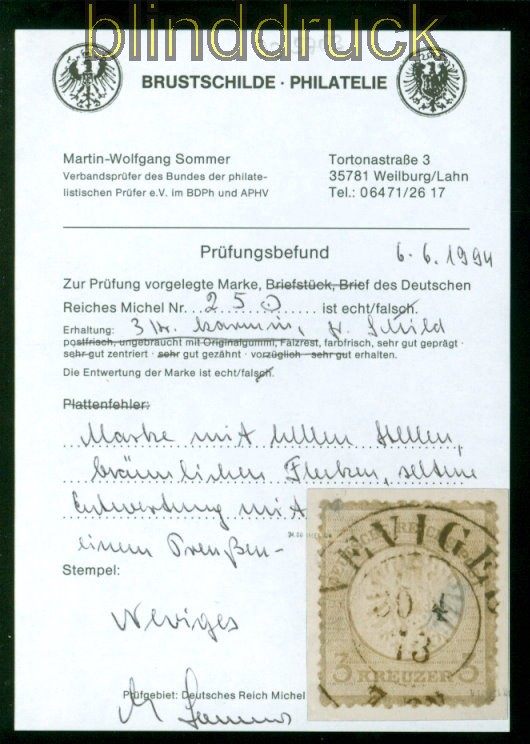 blinddruck
BRUSTSCHILDE · PHILATELIE
Martin-Wolfgang Sommer
Verbandsprüfer des Bundes der philate-
listischen Prüfer e.V. im BDPh und APHV
Tortonastraße 3
35781 Weilburg/Lahn
Tel.: 06471/26 17
Prüfungsbefund
6.6.1994
Zur Prüfung vorgelegte Marke, Briefstück, Brief des Deutschen
Reiches Michel Nr. 25 ist echt/falsch.
Erhaltung: 3 Kr. karmin, gr. Schild
postfrisch, ungebraucht mit Originalgummi, Falzrest, farbfrisch, sehr gut geprägt ·
sehr gut zentriert · sehr gut gezähnt · vorzüglich · sehr gut erhalten.
Die Entwertung der Marke ist echt/falsch.
Plattenfehler:
Marke mit hellen Stellen,
bräunlichen Flecken, seltene
Entwertung mit
einem Preußen-
Stempel:
Neviges
Prüfgebiet: Deutsches Reich Michel
M. Sommer
NEVIGES
30
73
3 KREUZER 3